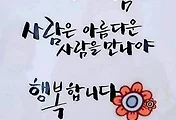 사람은 아름다운
사람을 만나야
행복합니다